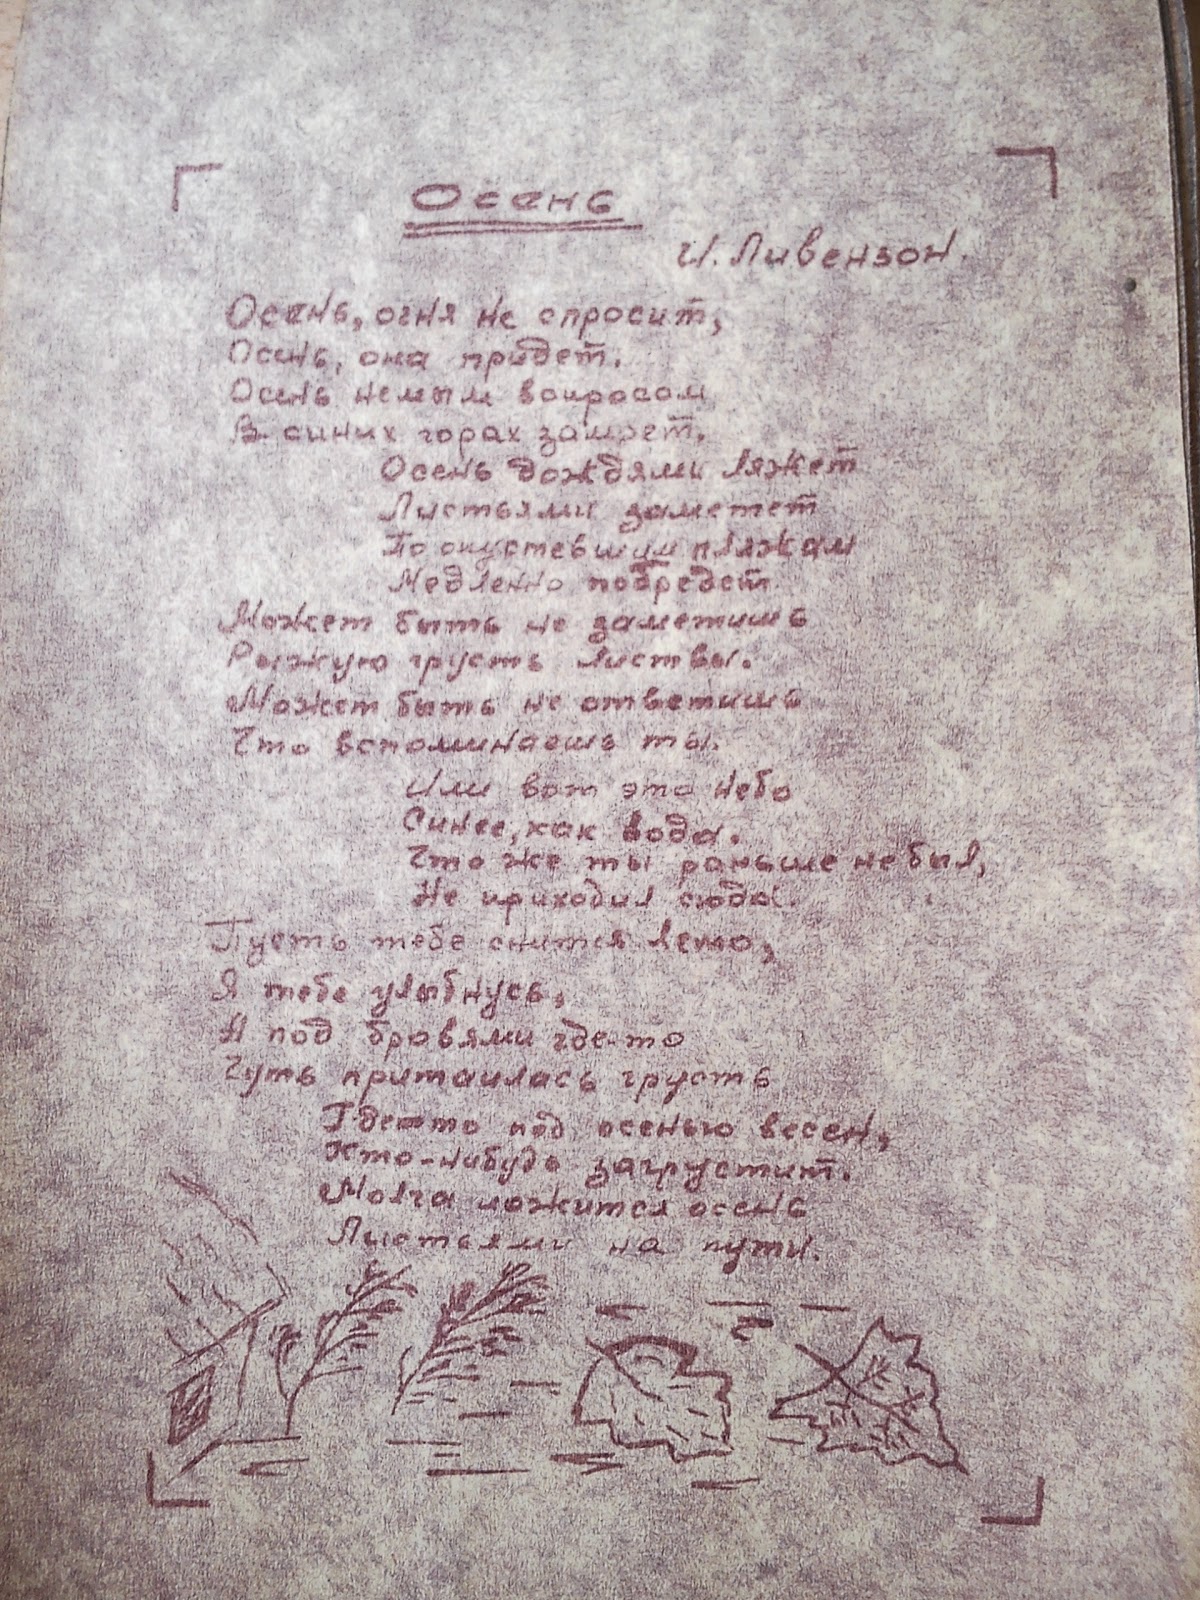 Осень
И. Ливензон.
Осень, огня не спросит,
Осень, она придет.
Осень немым вопросом
В синих горах замрет.
Осень дождями ляжет
Листьями заметет
По опустевшим пляжам
Медленно побредет
Может быть не заметишь
Рыжую грусть листвы.
Может быть не ответишь
Что вспоминаешь ты.
Или вот это небо
Синее, как вода.
Что же ты раньше не был,
Не приходил сюда.
Пусть тебе снится лето,
Я тебе улыбнусь,
А под бровями где-то
Чуть притаилась грусть
Где-то под осенью весен,
Кто-нибудь загрустит.
Молча ложится осень
Листьями на пути.